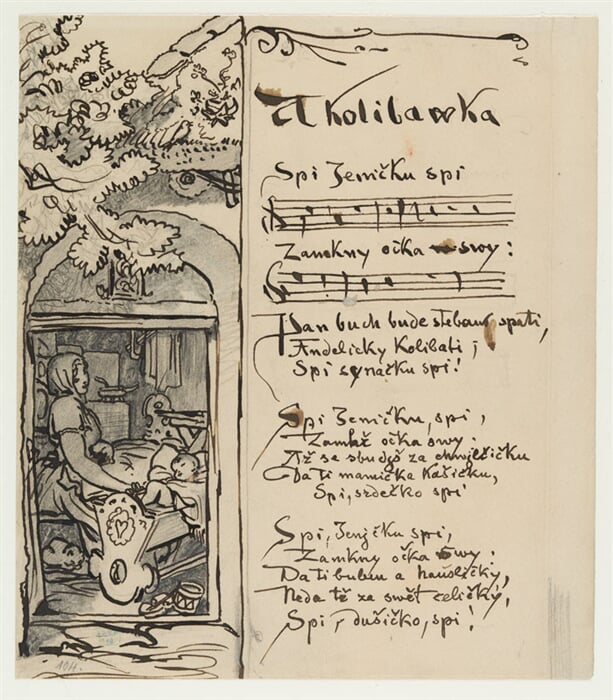 Ukolibawka
Spi Jeničku spi
Zamkny očka swy:
Pan buch bude stebau spati,
Andelicky Kolibati;
Spi synačku spi!
Spi Jeničku, spi,
očka swy:
Až se sbudyš za chwjlčičku
Da ti mamička Kašičku,
Spi, srdečko spi!
Spi, Jenjčku spi,
Zamkny očka swy:
Da ti buben a hausličky,
Neda tě za swět celičký,
Spi, dušičko, spi!